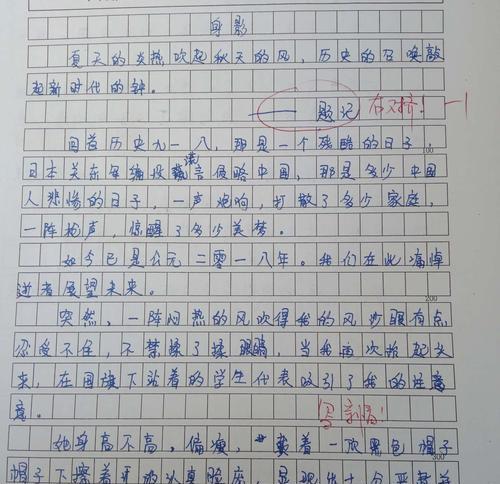 身影
夏天的炎热吹起秋天的风，历史的召唤敲
起新时代的钟。
——题记 右对齐！ -1
回首历史九一八，那是一个残酷的日子，
100
日本关东军编投流言侵略中国，那是多少中国
人悲惨的日子，一声炮响，打散了多少家庭，
一阵枪声，惊醒了多少美梦。
如今已是公元二零一八年。我们在此痛悼
逝者展望未来。
200
突然，一阵闷热的风吹得我的风沙眼有点
忍受不住，不禁揉了揉眼睛，当我再次抬起头
来，在国旗下站着的学生代表吸引了我的注意
意。
她身高不高，偏瘦，戴着一顶黑色帽子
300
帽子下